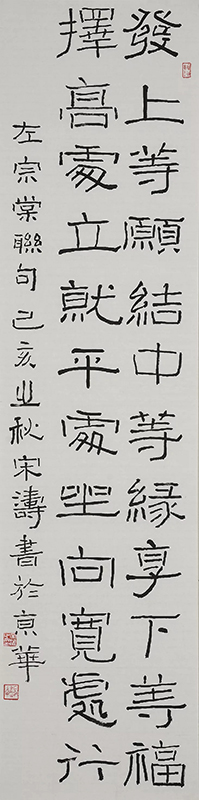 發上等願結中等緣享下等福
擇高處立就平處坐向寬處行
左宗棠聯句己亥之秋宋濤書於京華